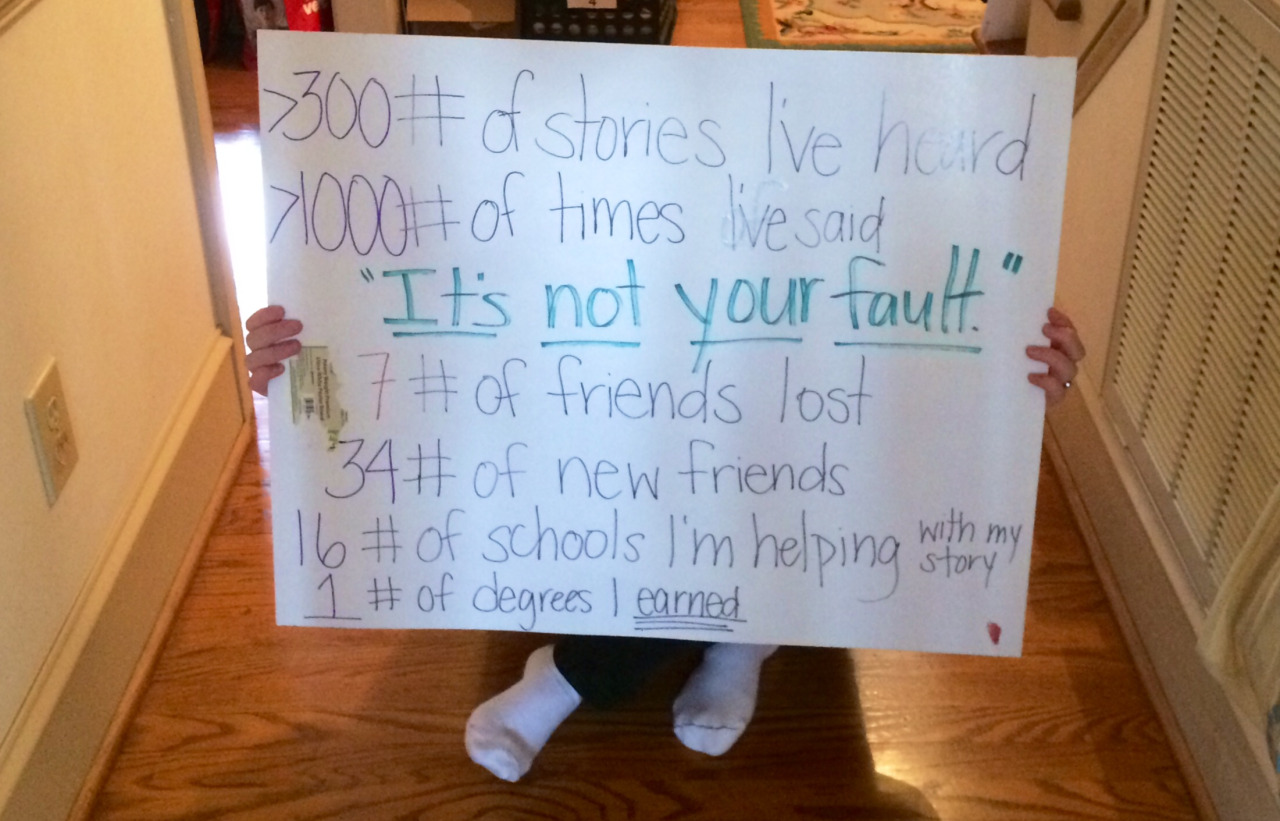 >300 # of stories I've heard
>1000 # of times I've said
"It's not your fault."
7 # of friends lost
34 # of new friends
16 # of schools I'm helping with my story
1 # of degrees I earned
4